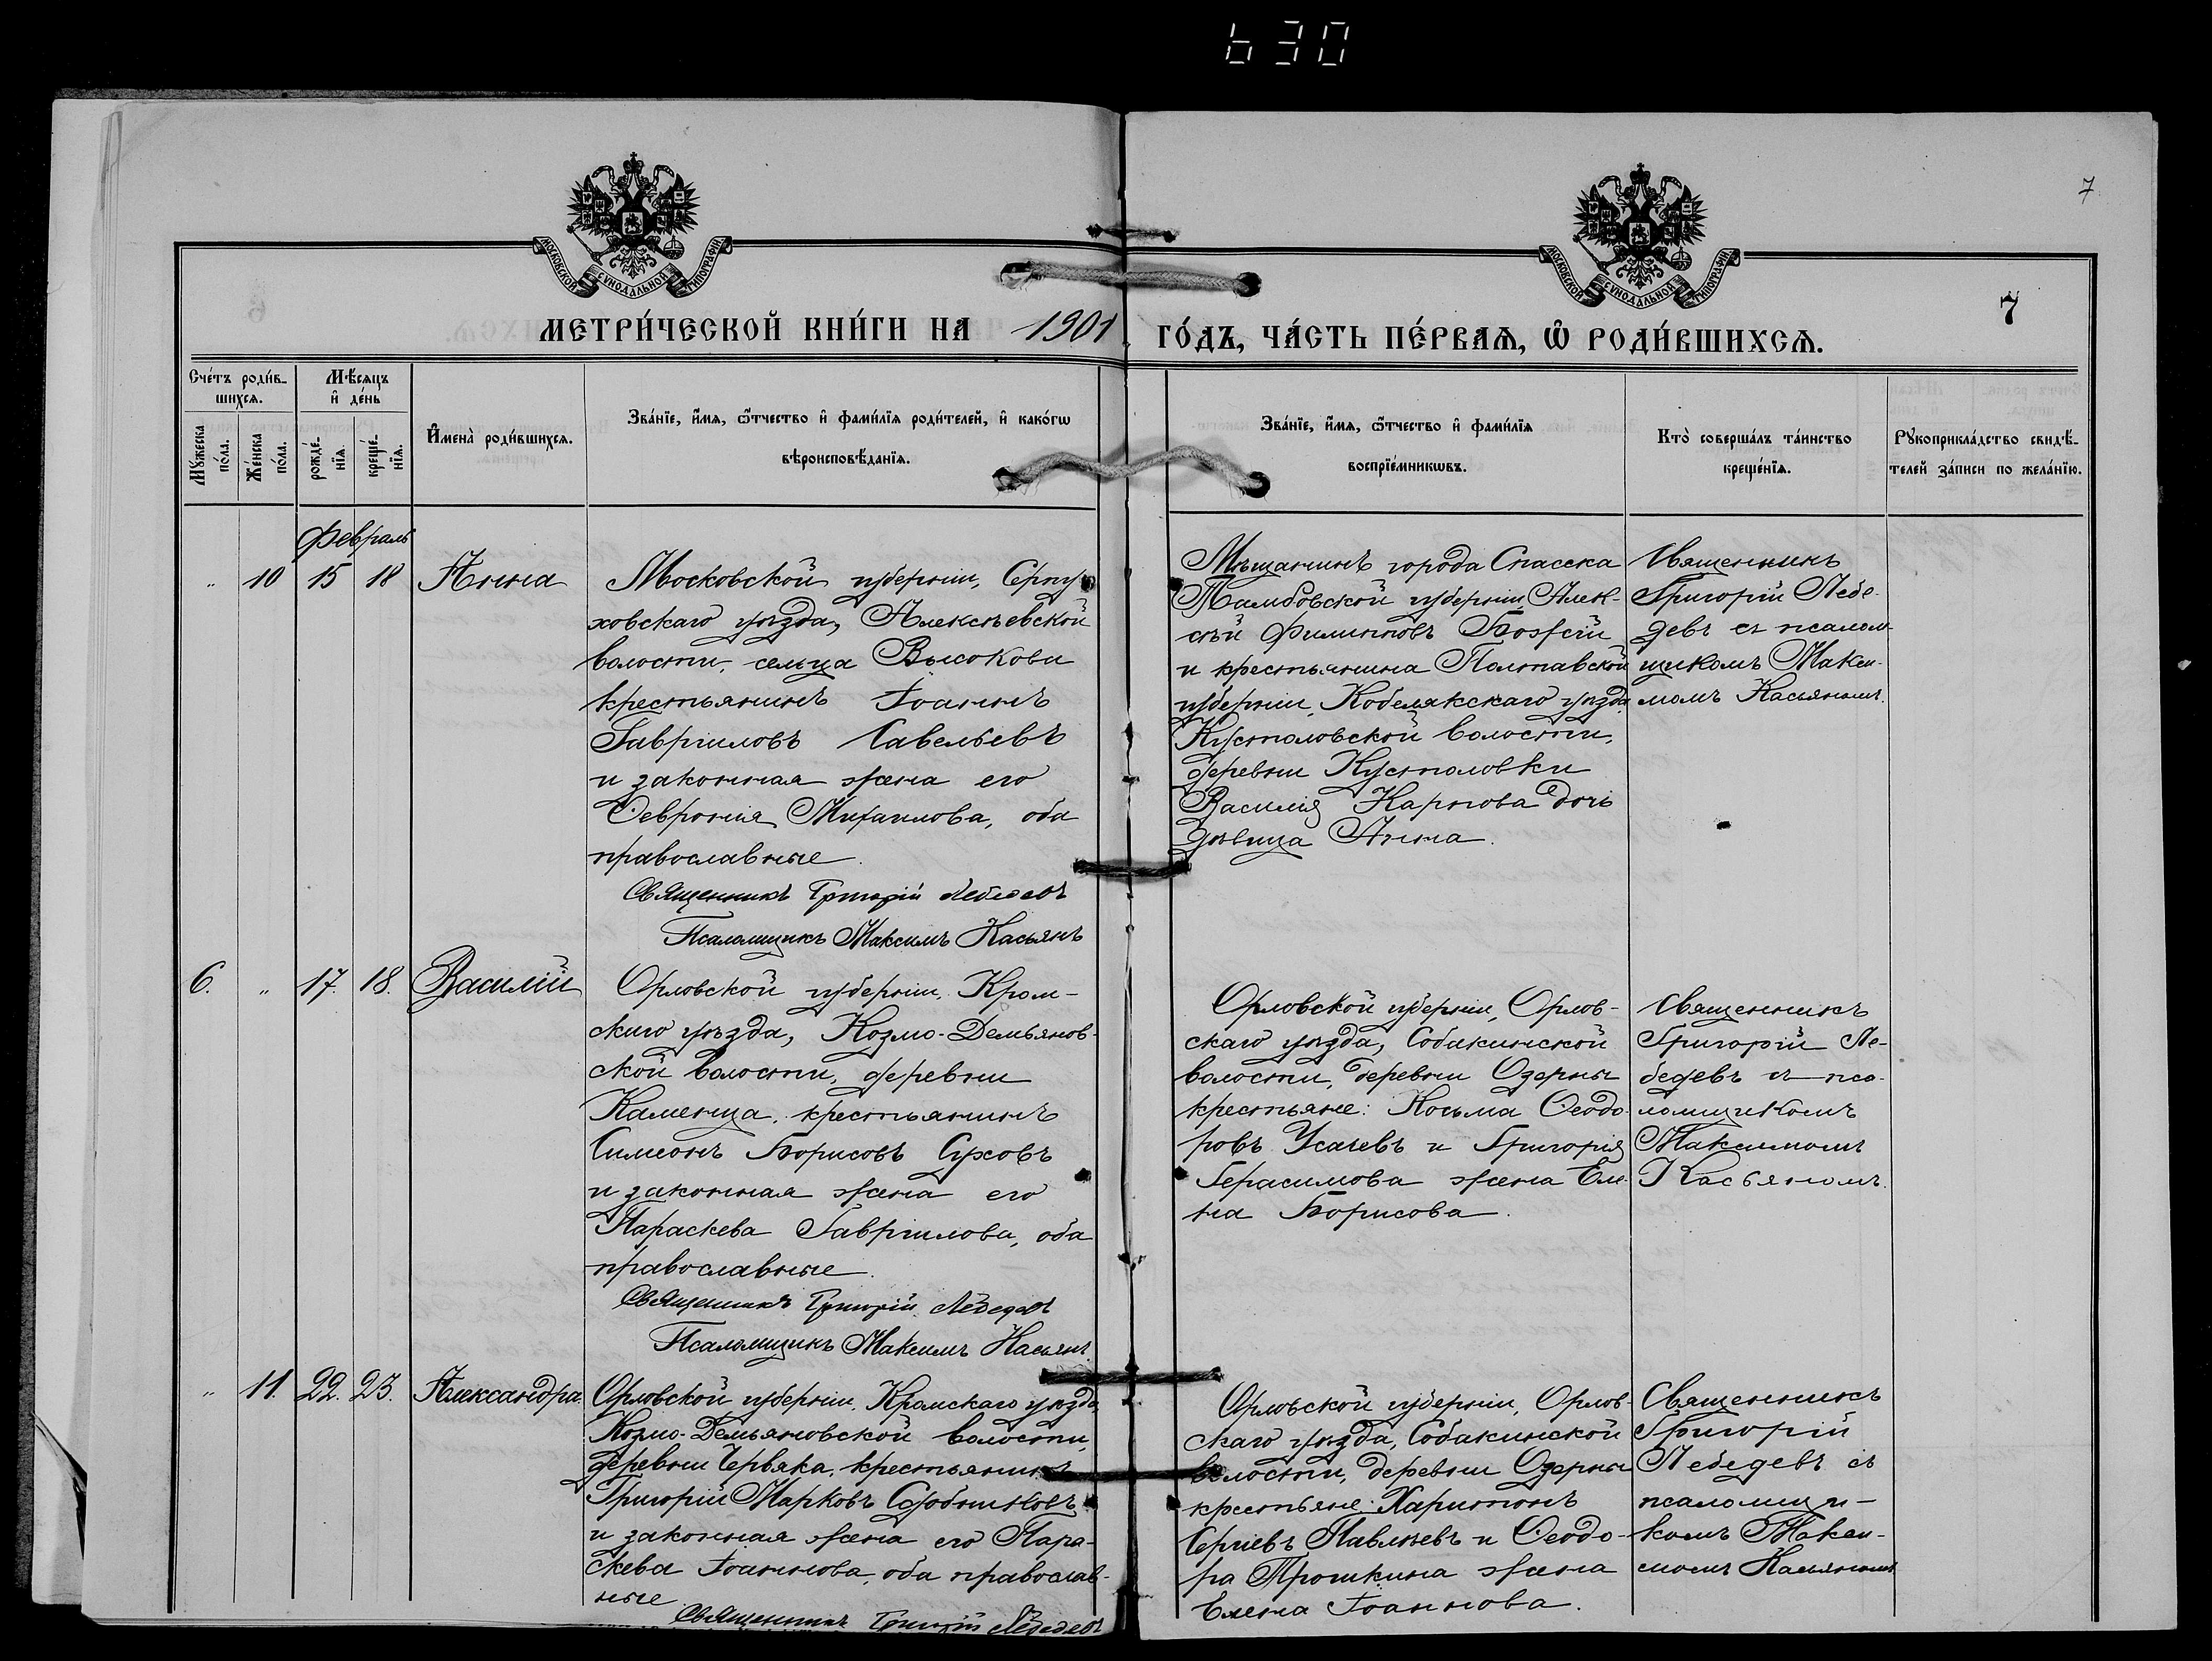 630
7
МОСКОВСКОЙ СѴНОДАЛЬНОЙ ТИПОГРАФІИ
МОСКОВСКОЙ СѴНОДАЛЬНОЙ ТИПОГРАФІИ
7
МЕТРИ́ЧЕСКОЙ КНИ́ГИ НА 1901 ГО́ДЪ, ЧА́СТЬ ПЕ́РВАѦ, Ѽ РОДИ́ВШИХСѦ.
Счетъ роди́в-
шихсѧ.
Мꙋжеска
по́ла.
Же́нска
по́ла.
Мѣ́сѧцъ
и де́нь
рожде́-
нїѧ.
креще́-
нїѧ.
Имена̀ роди́вшихсѧ.
Зва́нїе, и́мѧ, ѻ́тчество и фами́лїѧ роди́телей, и како́гѡ
вѣроисповѣ́данїѧ.
Зва́нїе, и́мѧ, ѻ́тчество и фами́лїѧ
воспрїе́мникѡвъ.
Кто̀ соверша́лъ та́инство
креще́нїѧ.
Рꙋкоприкла́дство свидѣ́-
телей за́писи по жела́нїю.
Февраль
" 10 15 18 Анна
Московской губерніи, Серпу-
ховскаго уѣзда, Алексѣевской
волости, сельца Высокова
крестьянинъ Іоаннъ
Гавриловъ Савельевъ
и законная жена его
Ѳевронія Михаилова, оба
православные.
Священникъ Григорій Лебедевъ
Псаломщикъ Максимъ Касьянъ
Мѣщанинъ города Спасска
Тамбовской губерніи Алек-
сѣй Филипповъ
и крестьянина Полтавской
губерніи, Кобелякскаго уѣзда
Кустоловской волости,
деревни Кустоловки
Василія Карпова дочь
дѣвица Анна.
Священникъ
Григорій Лебе-
девъ съ псалом-
щикомъ Макси-
момъ Касьяномъ.
6. " 17. 18. Василій
Орловской губерніи, Кром-
скаго уѣзда, Козмо-Демьянов-
ской волости, деревни
Каменца, крестьянинъ
Симеонъ Борисовъ Суховъ
и законная жена его
Параскева Гаврилова, оба
православные.
Священникъ Григорій Лебедевъ
Псаломщикъ Максимъ Касьянъ
Орловской губерніи, Орлов-
скаго уѣзда, Собакинской
волости, деревни Озерны
крестьяне: Косьма Ѳеодо-
ровъ Усачевъ и Григорія
Герасимова жена Еле-
на Борисова.
Священникъ
Григорій Ле-
бедевъ съ пса-
ломщикомъ
Максимомъ
Касьяномъ.
" 11. 22. 23. Александра.
Орловской губерніи, Кромскаго уѣзда,
Козмо-Демьяновской волости,
деревни Червяка, крестьянинъ
Григорій Марковъ
и законная жена его Пара-
скева Іоаннова, оба православ-
ные.
Священникъ Григорій Лебедевъ
Орловской губерніи, Орлов-
скаго уѣзда, Собакинской
волости, деревни Озерны
крестьяне: Харитонъ
Сергіевъ Павлѣевъ и Ѳеодо-
ра Трошкина жена
Елена Іоаннова.
Священникъ
Григорій
Лебедевъ съ
псаломщи-
комъ Макси-
момъ Касьяномъ